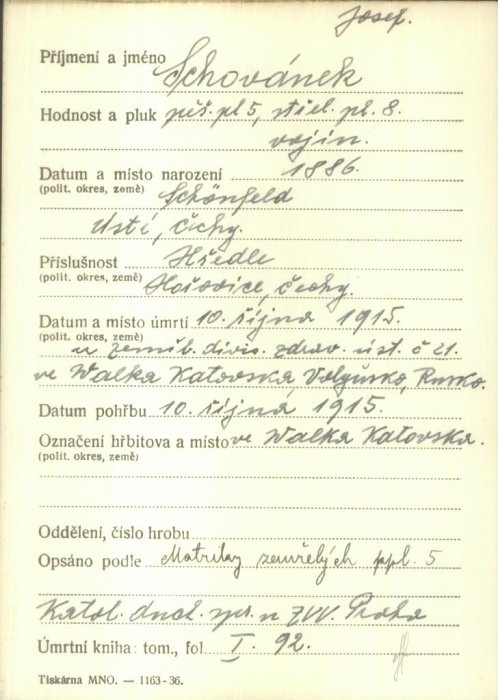 Josef.
Příjmení a jméno Schovánek
Hodnost a pluk pěš. pl 5, střel. pl. 8.
vojín.
Datum a místo narození 1886.
(polit. okres, země) Schönfeld
Ústí, Čechy.
Příslušnost Hředle
(polit. okres, země) Hořovice, Čechy.
Datum a místo úmrtí 10. října 1915.
(polit. okres, země) u zeměb. divis. zdrav. úst. č 21.
ve Walka Katovska, Volyňsko, Rusko.
Datum pohřbu 10. října 1915.
Označení hřbitova a místo ve Walka Katovska.
(polit. okres, země)
Oddělení, číslo hrobu
Opsáno podle Matriky zemřelých ppl. 5
Katol. duch. spr. u ZVV. Praha
Úmrtní kniha: tom., fol. I. 92.
Tiskárna MNO. — 1163-36.